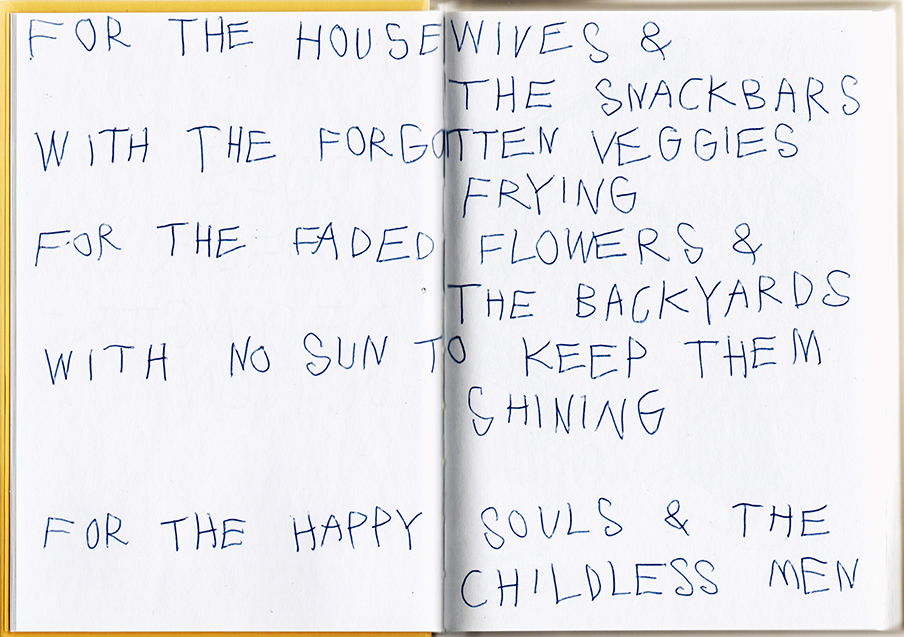 FOR THE HOUSEWIVES &
THE SNACKBARS
WITH THE FORGOTTEN VEGGIES
FRYING
FOR THE FADED FLOWERS &
THE BACKYARDS
WITH NO SUN TO KEEP THEM
SHINING
FOR THE HAPPY SOULS & THE
CHILDLESS MEN